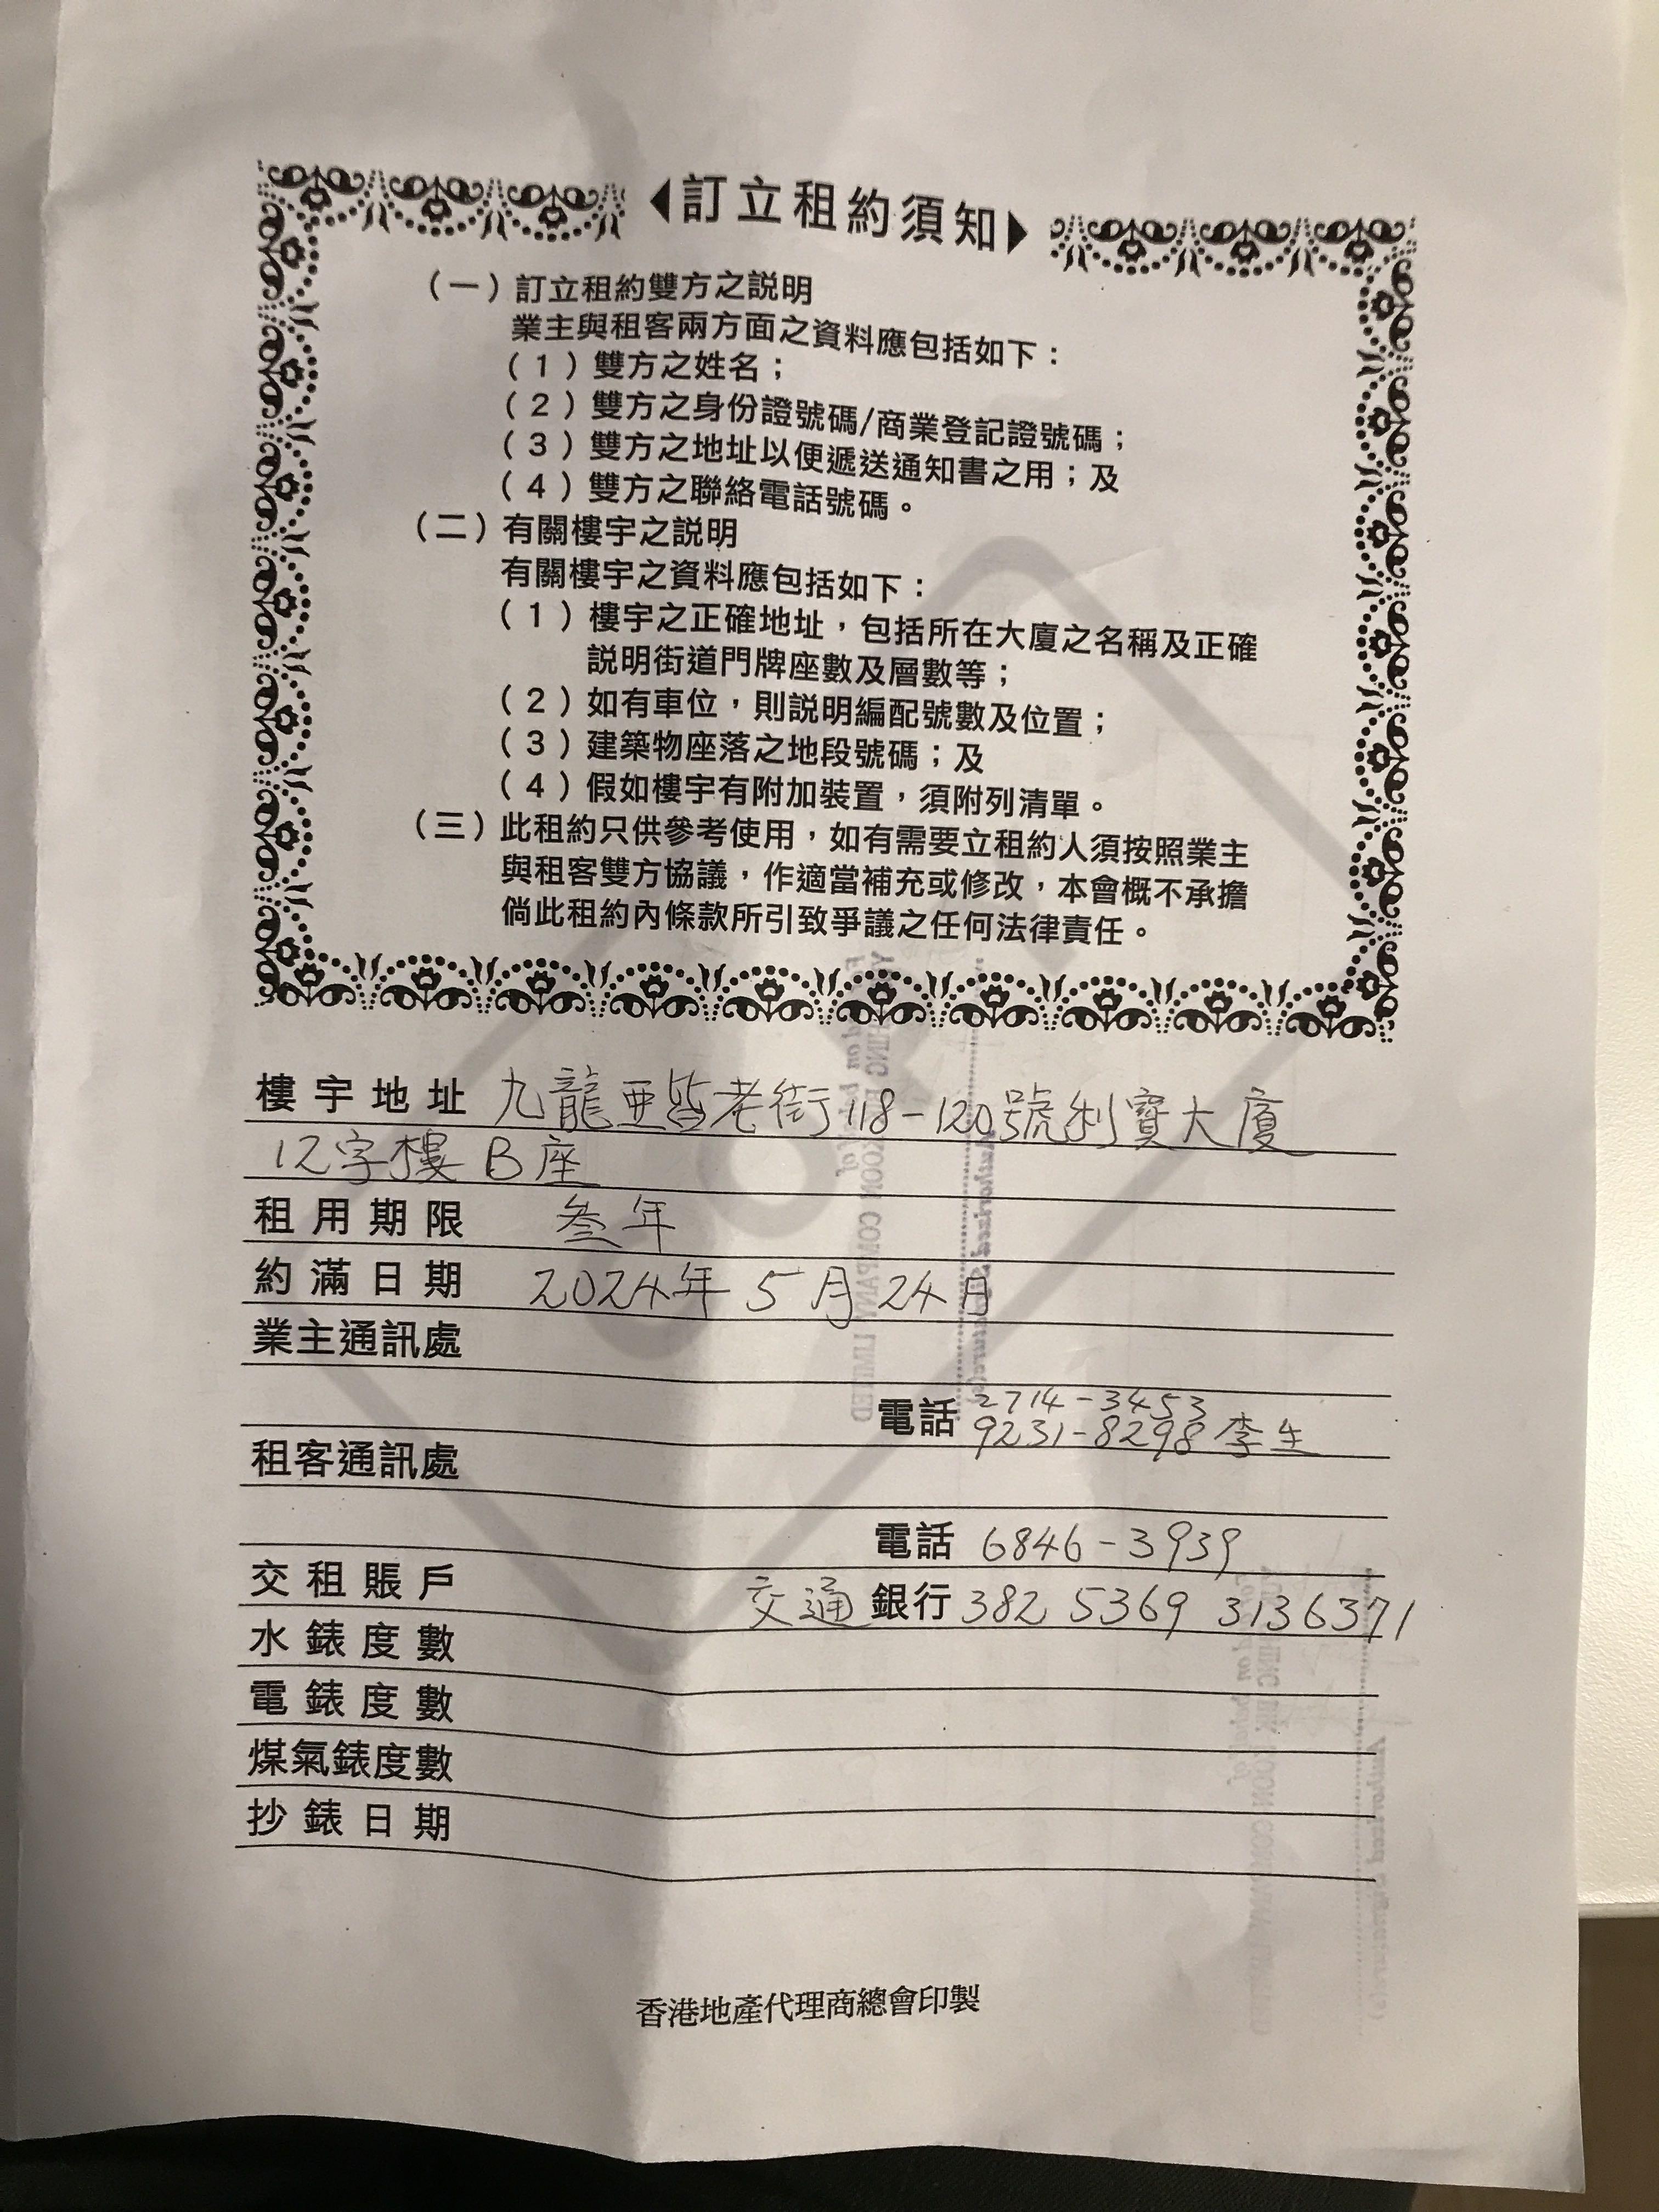 ◀訂立租約須知▶
(一)訂立租約雙方之説明
業主與租客兩方面之資料應包括如下：
(1)雙方之姓名；
(2)雙方之身份證號碼/商業登記證號碼；
(3)雙方之地址以便遞送通知書之用；及
(4)雙方之聯絡電話號碼。
(二)有關樓宇之説明
有關樓宇之資料應包括如下：
(1)樓宇之正確地址，包括所在大廈之名稱及正確
説明街道門牌座數及層數等；
(2)如有車位，則説明編配號數及位置；
(3)建築物座落之地段號碼；及
(4)假如樓宇有附加裝置，須附列清單。
(三)此租約只供參考使用，如有需要立租約人須按照業主
與租客雙方協議，作適當補充或修改，本會概不承擔
倘此租約內條款所引致爭議之任何法律責任。
樓宇地址 九龍亜皆老街118-120號利寶大廈
12字樓 B座
租用期限 叁年
約滿日期 2024年 5月24日
業主通訊處
2714-3453
電話 9231-8298 李生
租客通訊處
電話 6846-3939
交租賬戶 交通 銀行 382 5369 3136371
水錶度數
電錶度數
煤氣錶度數
抄錶日期
香港地產代理商總會印製